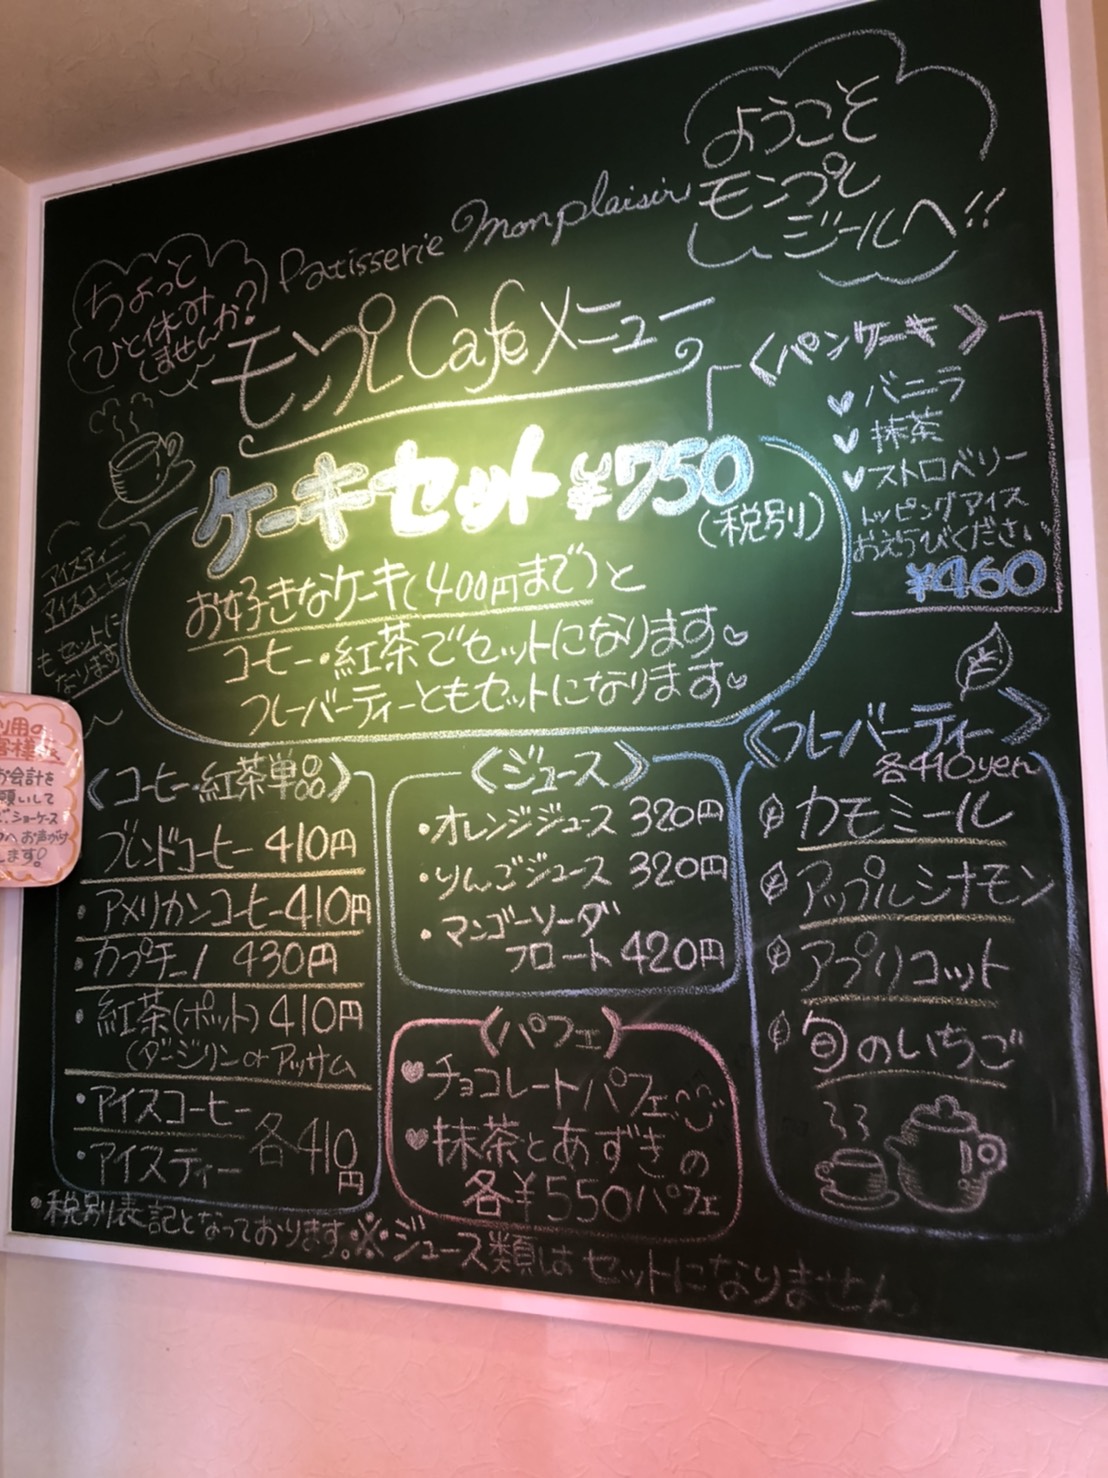 ようこそ
モンプレ
ジールへ!!
Patisserie Monplaisir
ちょっと
ひと休み
しませんか?
モンプレCafeメニュー
ケーキセット ¥750
(税別)
お好きなケーキ(400円まで)と
コーヒー・紅茶でセットになります
フレーバーティーともセットになります
アイスティー
アイスコーヒー
もセットに
なります
〈パンケーキ〉
バニラ
抹茶
ストロベリー
トッピングアイス
おえらびください
¥460
〈コーヒー・紅茶単品〉
ブレンドコーヒー 410円
・アメリカンコーヒー410円
・カプチーノ 430円
・紅茶(ポット)410円
(ダージリン or アッサム
・アイスコーヒー
・アイスティー
各410円
〈ジュース〉
・オレンジジュース 320円
・りんごジュース 320円
・マンゴーソーダ
フロート 420円
〈パフェ〉
チョコレートパフェ
抹茶とあずきの
各¥550パフェ
〈フレーバーティー〉
各410yen
カモミール
アップルシナモン
アプリコット
旬のいちご
・税別表記となっております。※ジュース類はセットになりません
用の
客様
お会計を
願いして
ショーケース
へお声がけ
します!